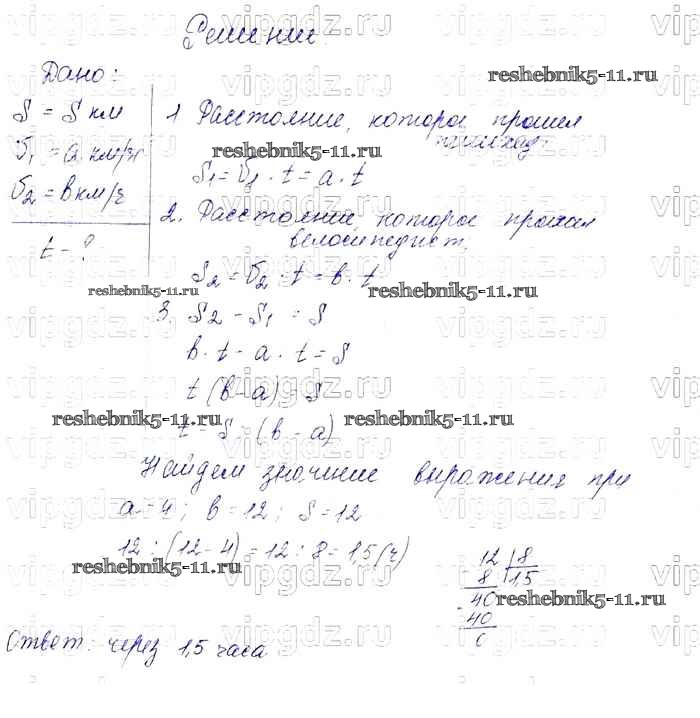 Решение
Дано:
reshebnik5-11.ru
S = S км
V₁ = a км/ч
V₂ = b км/ч
t - ?
1 Расстояние, которое прошел
пешеход
reshebnik5-11.ru
S₁ = V₁ · t = a · t
2. Расстояние, которое проехал
велосипедист.
S₂ = V₂ · t = b · t
reshebnik5-11.ru
reshebnik5-11.ru
3. S₂ - S₁ = S
b · t - a · t = S
t (b - a) = S
reshebnik5-11.ru
reshebnik5-11.ru
t = S : (b - a)
Найдем значение выражения при
a = 4 ; b = 12 ; S = 12
12 : (12 - 4) = 12 : 8 = 1,5 (ч)
reshebnik5-11.ru
12 | 8
8 | 1,5
40
reshebnik5-11.ru
40
0
Ответ: через 1,5 часа
vipgdz.ru